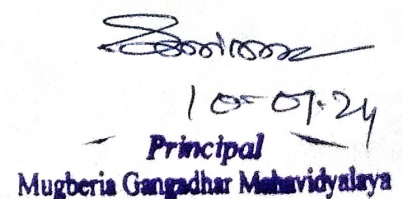 10-07-24
Principal
Mugberia Gangadhar Mahavidyalaya